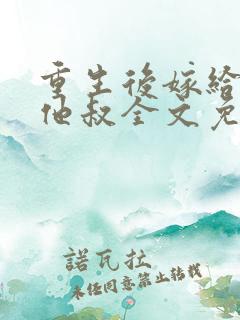 重生後嫁給
他叔全文免
諾瓦拉
未经同意禁止转载